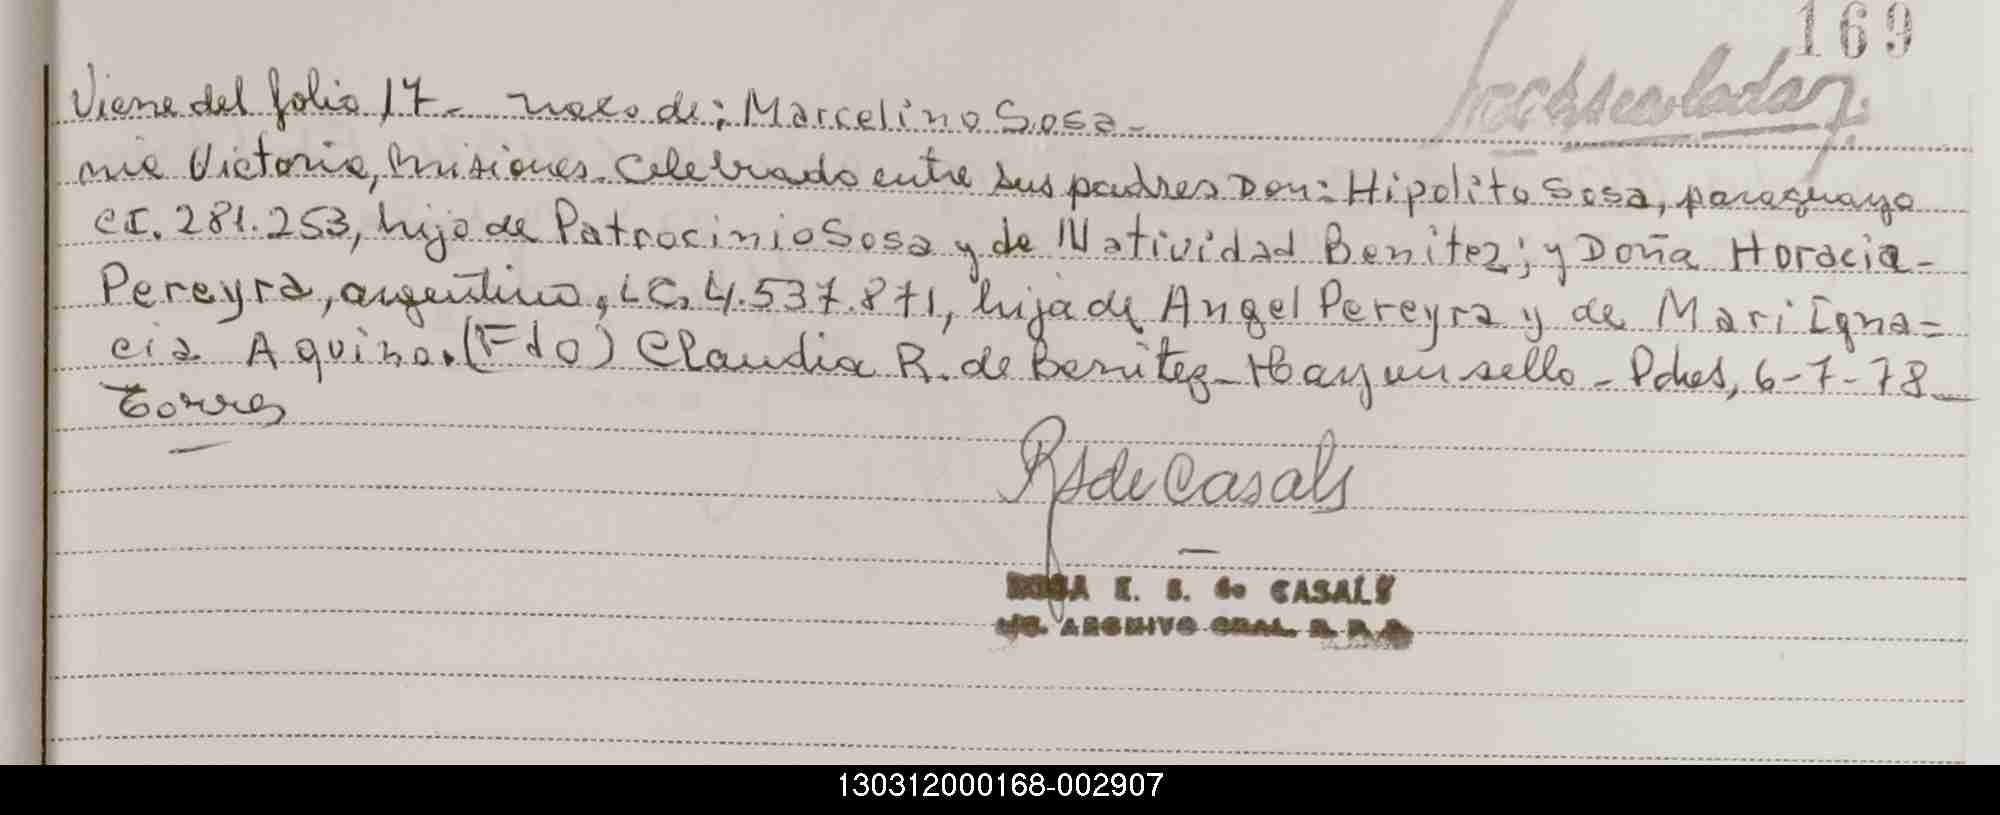 169
Viene del folio 17- naco de: Marcelino Sosa-
nia Victoria, Misiones. Celebrado entre sus padres Don: Hipolito Sosa, paraguayo
CI. 281.253, hijo de Patrocinio Sosa y de Natividad Benitez; y Doña Horacia-
Pereyra, argentina, LC. 4.537.871, hija de Angel Pereyra y de Mari Igna=
cia Aquino. (Fdo) Claudia R. de Benitez- Hay un sello - Pdas, 6-7-78_
Torres
RS de Casals
ROSA E. S. de CASALS
ARCHIVO GRAL. R. P.
130312000168-002907